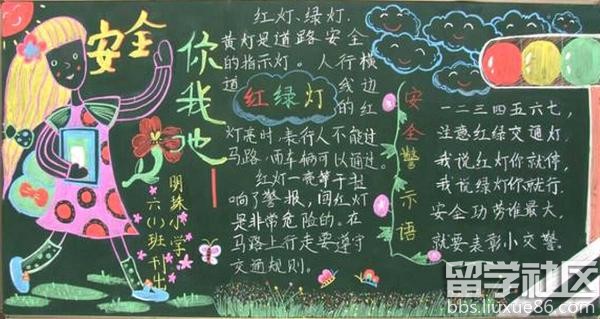 安全
你我他
明珠小学
六(1)班刊出
红灯、绿灯、
黄灯是道路安全
的指示灯。人行横
道 线边
的红
红绿灯
灯亮时,表行人不能过
马路,而车辆可以通过。
红灯一亮等于拉
响了警报,闯红灯
是非常危险的。在
马路上行走要遵守
交通规则。
安全警示语
一二三四五六七,
注意红绿交通灯,
我说红灯你就停,
我说绿灯你就行.
安全功劳谁最大,
就要表彰小交警.
留学社区
bbs.liuxue86.com